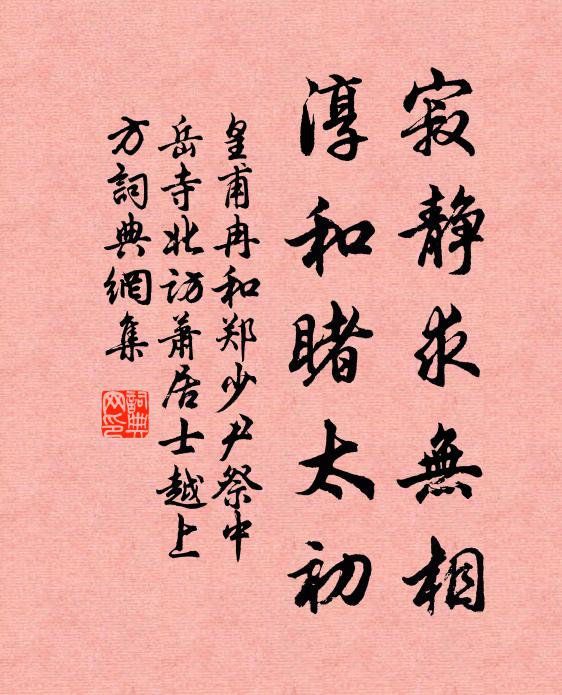 寂静求無相
淳和睹太初
皇甫冉和郑少尹祭中
岳寺北访萧居士越上
方詞典網集
詞典
网印